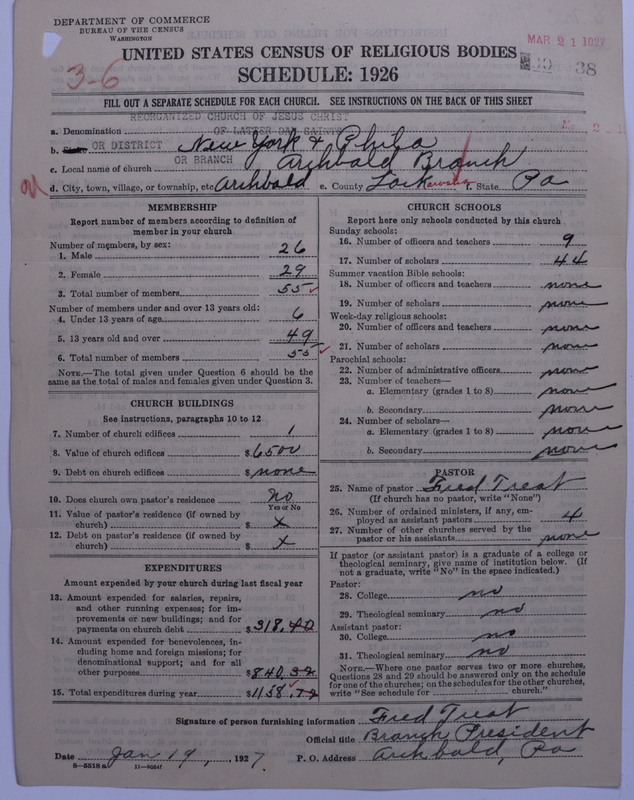 DEPARTMENT OF COMMERCE
BUREAU OF THE CENSUS
WASHINGTON
MAR 21 1927
UNITED STATES CENSUS OF RELIGIOUS BODIES
3-6
SCHEDULE: 1926
38
FILL OUT A SEPARATE SCHEDULE FOR EACH CHURCH. SEE INSTRUCTIONS ON THE BACK OF THIS SHEET
REORGANIZED CHURCH OF JESUS CHRIST
a. Denomination OF LATTER DAY SAINTS
b. State OR DISTRICT New York & Phila
OR BRANCH
c. Local name of church Archbald Branch
d. City, town, village, or township, etc Archbald e. County Lackawanna f. State Pa
MEMBERSHIP
Report number of members according to definition of
member in your church
Number of members, by sex:
1. Male 26
2. Female 29
3. Total number of members 55
Number of members under and over 13 years old:
4. Under 13 years of age 6
5. 13 years old and over 49
6. Total number of members 55
NOTE.—The total given under Question 6 should be
same as the total of males and females given under Question 3.
CHURCH BUILDINGS
See instructions, paragraphs 10 to 12
7. Number of church edifices 1
8. Value of church edifices $ 6500
9. Debt on church edifices $ none
10. Does church own pastor's residence No
Yes or No
11. Value of pastor's residence (if owned by
church) $ x
12. Debt on pastor's residence (if owned by
church) $ x
EXPENDITURES
Amount expended by your church during last fiscal year
13. Amount expended for salaries, repairs,
and other running expenses; for im-
provements or new buildings; and for
payments on church debt $ 318.40
14. Amount expended for benevolences, in-
cluding home and foreign missions; for
denominational support; and for all
other purposes $ 840.32
15. Total expenditures during year $ 1158.72
CHURCH SCHOOLS
Report here only schools conducted by this church
Sunday schools:
16. Number of officers and teachers 9
17. Number of scholars 44
Summer vacation Bible schools:
18. Number of officers and teachers none
19. Number of scholars none
Week-day religious schools:
20. Number of officers and teachers none
21. Number of scholars none
Parochial schools:
22. Number of administrative officers none
23. Number of teachers—
a. Elementary (grades 1 to 8) none
b. Secondary none
24. Number of scholars—
a. Elementary (grades 1 to 8) none
b. Secondary none
PASTOR
25. Name of pastor Fred Treat
(If church has no pastor, write "None")
26. Number of ordained ministers, if any, em-
ployed as assistant pastors 4
27. Number of other churches served by the
pastor or his assistants none
If pastor (or assistant pastor) is a graduate of a college or
theological seminary, give name of institution below. (If
not a graduate, write "No" in the space indicated.)
Pastor:
28. College no
29. Theological seminary no
Assistant pastor:
30. College no
31. Theological seminary no
NOTE.—Where one pastor serves two or more churches,
Questions 28 and 29 should be answered only on the schedule
for one of the churches; on the schedules for the other churches,
write "See schedule for church."
Signature of person furnishing information Fred Treat
Official title Branch President
Date Jan 19, 1927 P. O. Address Archbald, Pa
8-5518a 11-9054f